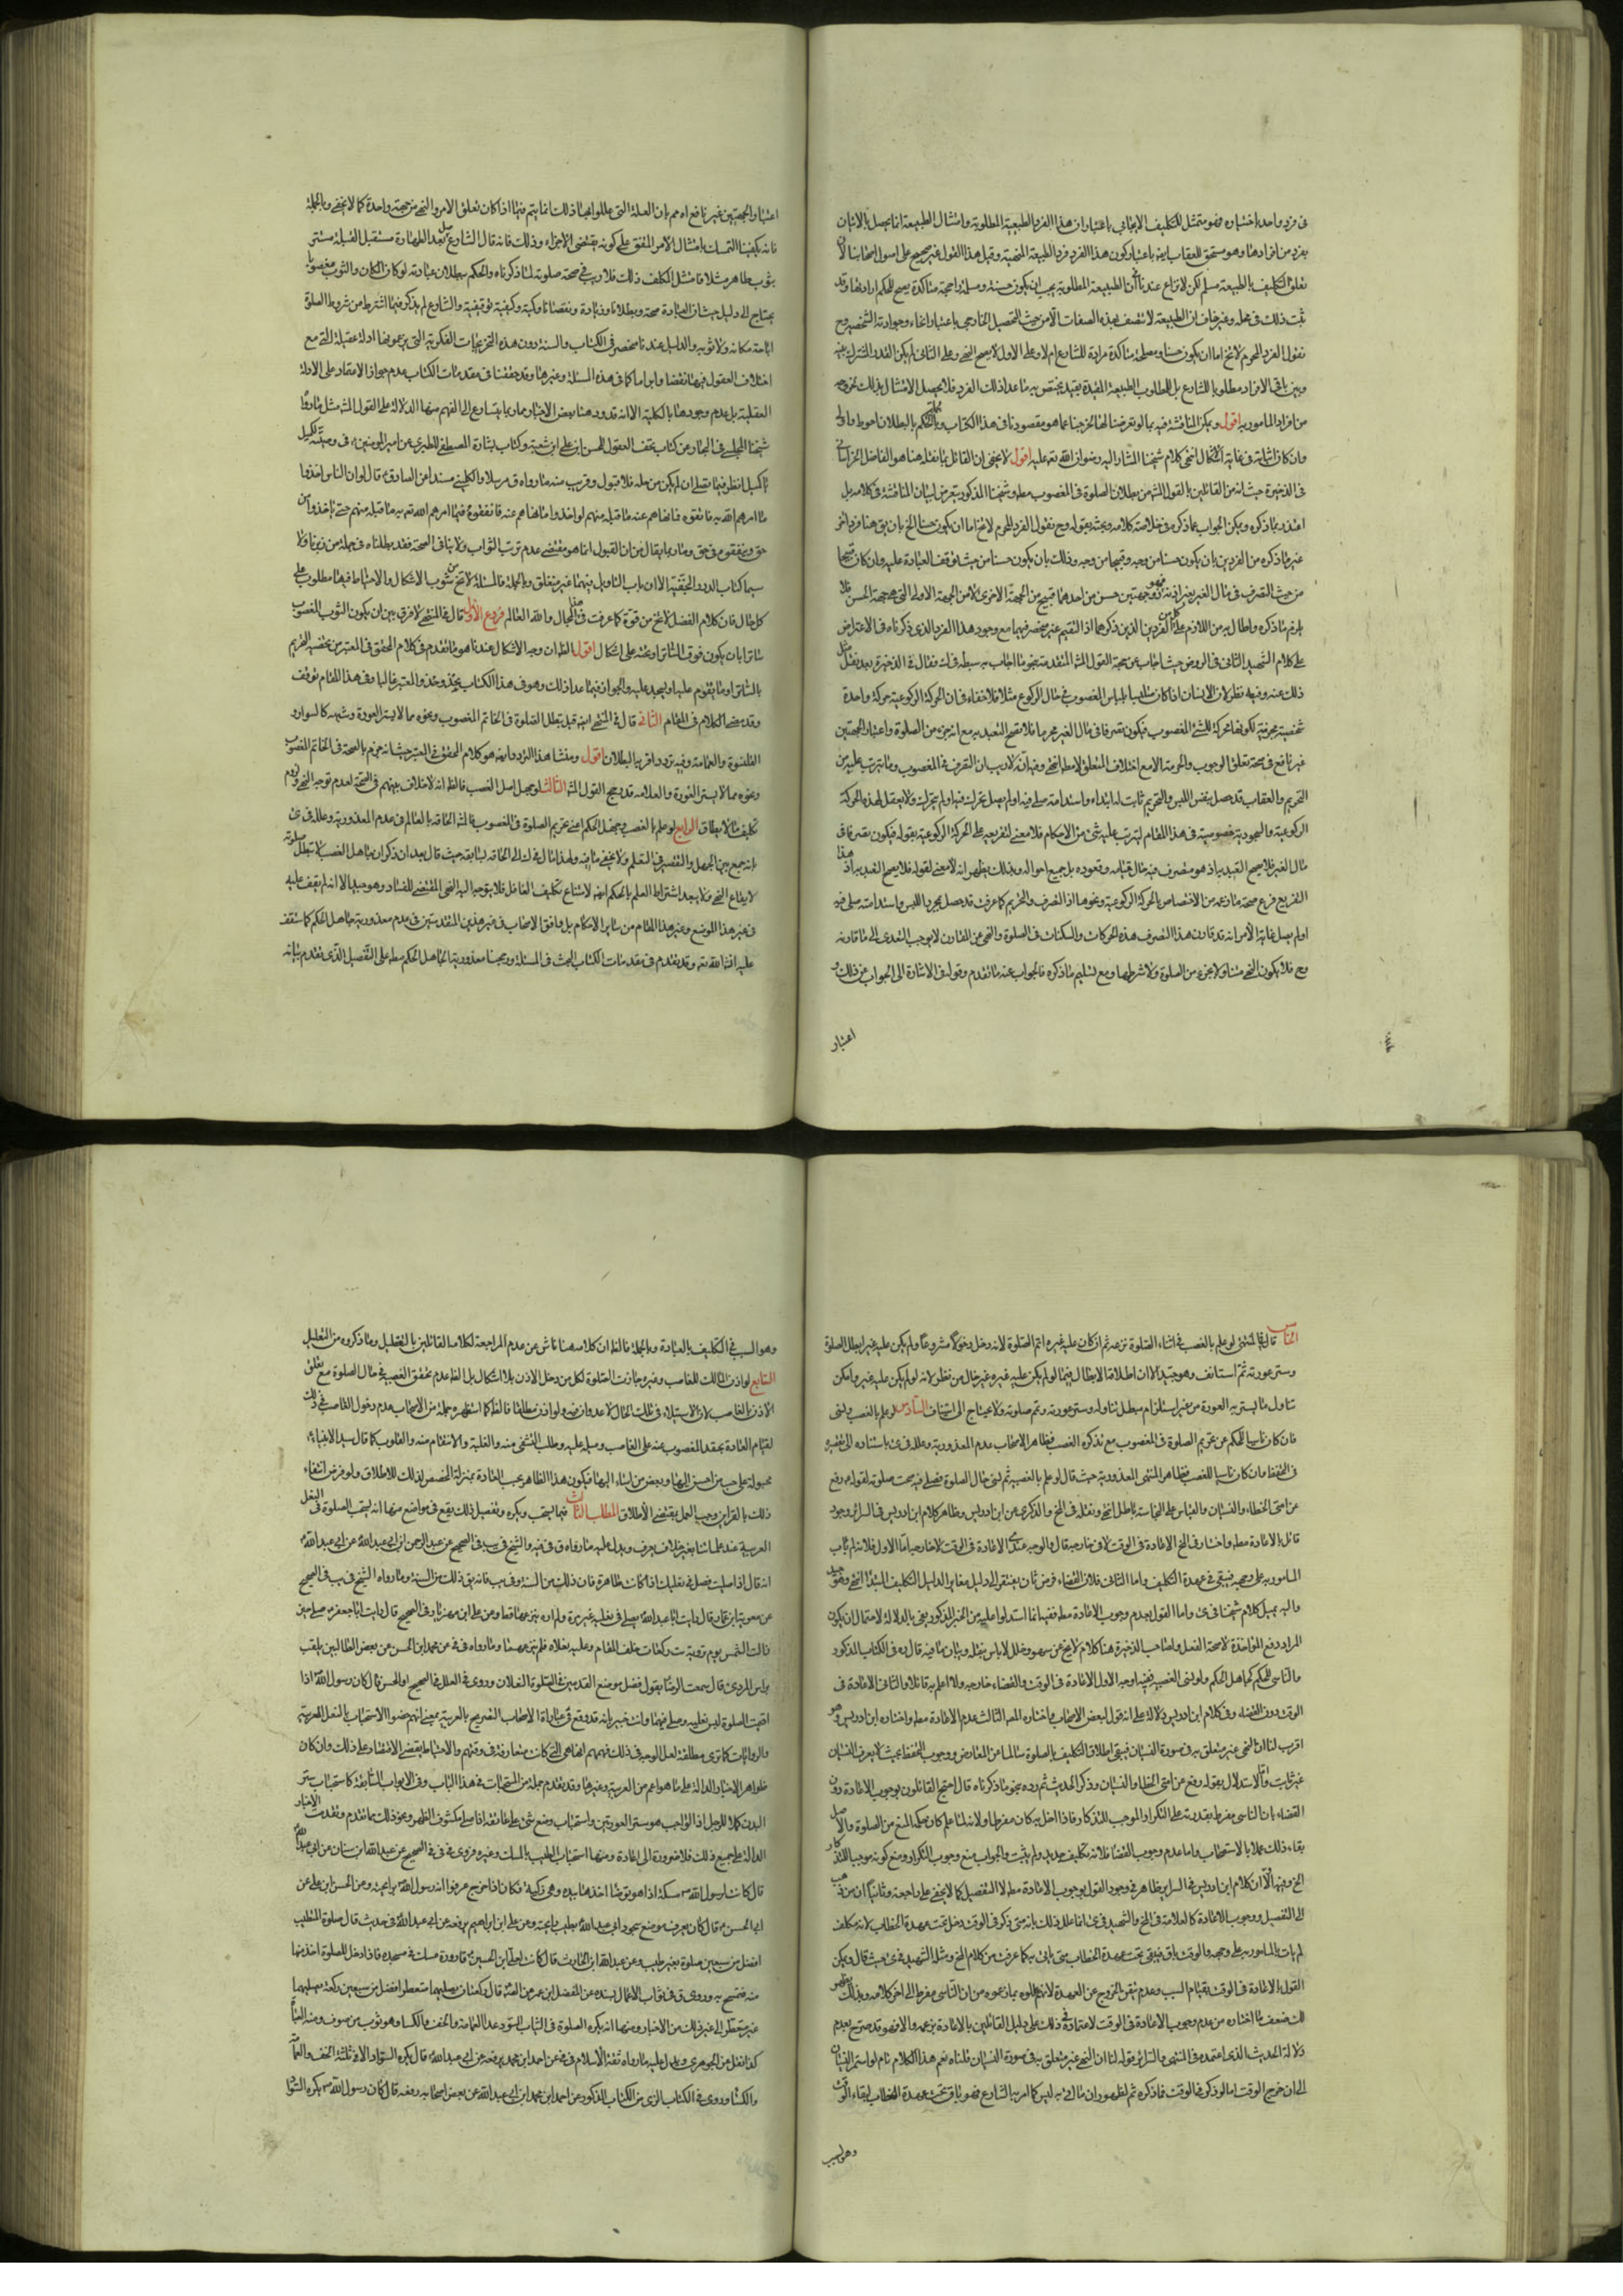 فى فرد واحد باختياره فهو ممتثل للتكليف الايجابي باعتبار ان هذا الفرد الطبيعة المطلوبة وامتثال الطبيعة انما يحصل بالاتيان
بفرد من افرادها وهو مستحق للعقاب ايضا باعتبار كون هذا الفرد فردا للطبيعة المنهية وقيل هذا القول غير صحيح على اصول اصحابنا لان
تعلق التكليف بالطبيعة مسلم لكن لا نزاع عندنا في أن الطبيعة المطلوبة يجب ان يكون حسنة ومصلحة راجحة متاكدة يصح للحكيم ارادتها وقد
ثبت ذلك فى محله وغير خاف ان الطبيعة لا تتصف بهذه الصفات الا من حيث التحصيل الخارجي باعتبار انحاء وجوداته الشخصية وح
نقول الفرد المحرم لا يخ اما ان يكون حسنا ومصلحة متاكدة مرادة للشارع ام لا وعلى الاول لا يصح النهي وعلى الثانى لم يكن القدر المشترك بينه
وبين باقى الافراد مطلوبا للشارع بل المطلوب الطبيعة المقيدة بقيد يختص به ما عدا ذلك الفرد فلا يحصل الامتثال بذلك لخروجه
من افراد المامور به اقول ويمكن المناقشة فيه بما لو تعرضنا لها لخرجنا عما هو مقصودنا فى هذا الكتاب وبالجملة فالحكم بالبطلان احوط واولى
وان كان اثباته فى غاية الاشكال انتهى كلام شيخنا المشار اليه رضوان الله تعه عليه اقول لا يخفى ان القائل بما نقله هنا هو الفاضل الخراسانى
فى الذخيرة حيث انه من القائلين بالقول المشهور من بطلان الصلوة فى المغصوب مطه وشيخنا المذكور تعرض لبيان المناقشة فى كلامه بل
اعتذر بما ذكره ويمكن الجواب عما ذكره فى خلاصة كلامه وبحثه بقوله وح نقول الفرد المحرم لا يخ اما ان يكون حسنا الخ بان يق هنا فرد اخر
غير ما ذكره من الفردين بان يكون حسنا من وجه وقبيحا من وجه وذلك بان يكون حسنا من حيث توقف العبادة عليه وان كان قبيحا
من حيث التصرف فى مال الغير بغير اذنه فهو ذو جهتين حسن من احدهما قبيح من الجهة الاخرى الا من الجهة الاولى التى هى جهة الحسن فلا
يلزم ما ذكره واطال به من اللازم على كل من الفردين الذين ذكرهما اذ التقيم غير منحصر فيهما مع وجود هذا الفرد الذى ذكرناه فى الاعتراض
على كلام الشهيد الثانى فى الروض حيث اجاب عن حجة القول المش المتقدمة بنحو ما اجاب به سبطه فى ك فقال فى الذخيرة بعد نقل
ذلك عنه وفيه نظر لان الانسان اذا كان متلبسا بلباس المغصوب فى حال الركوع مثلا فلا خفاء فى ان الحركة الركوعية حركة واحدة
شخصية محرمة لكونها محركة للشئ المغصوب فيكون تصرفا فى مال الغير محرما فلا يصح التعبد به مع انه جزء من الصلوة واعتبار الجهتين
غير نافع فى صحة تعلق الوجوب والحرمة الا مع اختلاف المتعلق لا مطه انتهى وفيه انه لا ريب ان التصرف فى المغصوب وما يترتب عليه من
التحريم والعقاب قد حصل بنفس اللبس والتحريم ثابت له ابتداء واستدامة صلى فيه او لم يصل تحرك فيه او لم يتحرك ولا يعقل لهذه الحركة
الركوعية والسجودية خصوصية فى هذا المقام ليترتب عليه شئ من الاحكام فلا معنى لتفريعه على الحركة الركوعية بقوله فيكون تصرفا فى
مال الغير فلا يصح التعبد به اذ هو متصرف فيه حال قيامه وقعوده بل جميع احواله وبذلك يظهر انه لا معنى لقوله فلا يصح التعبد به اذ هذا
التفريع فرع صحة ما زعمه من الاختصاص بالحركة الركوعية ونحوها اذ التصرف والتحريم كما عرفت قد حصل بمجرد اللبس واستدامته صلى فيه
او لم يصل غاية الامر انه قد قارن هذا التصرف هذه الحركات والسكنات فى الصلوة والنهى عن المقارن لا يوجب التعدى الى ما قارنه
وح فلا يكون النهى متناولا لجزء من الصلوة ولا شرطها ومع تسليم ما ذكره فالجواب عنه ما تقدم وقوله فى الاشارة الى الجواب عن ذلك و
اعتبار
اعتبار الجهتين غير نافع اه مم بان العلة التى عللوا بها ذلك انما يتم فيما اذا كان تعلق الامر والنهى من جهة واحدة كما لا يخفى وبالجملة
فانه يكفينا التمسك بامتثال الامر المتفق على كونه يقتضى الاجزاء وذلك فانه قال الشارع صل بعد الطهارة مستقبل القبلة مستتر
بثوب طاهر مثلا فامتثل المكلف ذلك فلا ريب فى صحة صلوته لما ذكرناه والحكم ببطلان عبادته لو كان المكان والثوب مغصوبا
يحتاج الى دليل حيث ان العبادة صحة وبطلانا وزيادة ونقصانا وكمية وكيفية توقيفية والشارع لم يذكر فيما اشترط من شروط الصلوة
اباحة مكانه ولا ثوبه والدليل عندنا منحصر فى الكتاب والسنة دون هذه التخريجات الفكرية التى يزعمونها ادلة عقلية التى مع
اختلاف العقول فيها نقضا وابراما كما فى هذه المسئلة وغيرها وقد حققنا فى مقدمات الكتاب عدم جواز الاعتماد على الادلة
العقلية بل عدم وجودها بالكلية الا انه قد ورد هنا بعض الاخبار مما ربما يتسارع الى الفهم منها الدلالة على القول المش مثل ما رواه
شيخنا المجلسى فى البحار عن كتاب تحف العقول للحسن ابن على ابن شعبة وكتاب بشارة المصطفى للطبرى عن امير المومنين ع فى وصيته لكميل
يا كميل انظر فيما تصلى ان لم يكن من حله فلا قبول وقريب منه ما رواه ق مرسلا والكلينى مسندا عن الصادق ع قال لو ان الناس اخذوا
ما امرهم الله به فانفقوه فيما نهاهم عنه ما قبله منهم ولو اخذوا ما نهاهم عنه فانفقوه فيما امرهم الله تعه به ما قبله منهم حتى ياخذوه من
حق وينفقوه فى حق وما ربما يقال من ان القبول انما هو مقتضى عدم ترتب الثواب ولا ينافى الصحة فقد بطلناه فى جملة من زبرنا ولا
سيما كتاب الدرر النجفية الا ان باب التاويل فيهما غير منغلق وبالجملة فالمسئلة لا تخ من شوب الاشكال والاحتياط فيها مطلوب على
كل حال فان كلام الفضل لا يخ من قوة كما عرفت فى هذا المجال والله العالم فروع الاول قال فى المنتهى لا فرق بين ان يكون الثوب المغصوب
ساترا بان يكون فوق الساتر او تحته على اشكال اقول الظ ان وجه الاشكال عندنا هو ما تقدم فى كلام المحقق فى المعتبر من تخصيصه التحريم
بالساتر او ما يقوم عليه او يسجد عليه والجواز فيما عدا ذلك وهو فى هذا الكتاب يحذو حذو المعتبر غالبا وفى هذا المقام توقف
وقد مضى الكلام فى المقام الثانى قال فى المنتهى ايضا قيل تبطل الصلوة فى الخاتم المغصوب ونحوه مما لا يستر العورة وشبهه كالسوار و
القلنسوة والعمامة وفيه تردد اقربه البطلان اقول ومنشا هذا التردد ايضا هو كلام المحقق فى المعتبر حيث انه جزم بالصحة فى الخاتم المغصوب
ونحوه مما لا يستر العورة والعلامه قد رجح القول المش الثالث لو جهل اصل الغصب فالظ انه لا خلاف بينهم فى الصحة لعدم توجه النهى ولزوم
تكليف ما لا يطاق الرابع لو علم بالغصب وجهل الحكم اعنى تحريم الصلوة فى المغصوب فالمش الحاقه بالعالم فى عدم المعذورية وعلله فى عى
بانه جمع بين الجهل والتقصير فى التعلم ولا يخفى ما فيه ولهذا مال فى ك الى الحاقه بسابقه حيث قال بعد ان ذكر ان جاهل الغصب لا تبطل صلوته
لارتفاع النهى ولا يبعد اشتراط العلم بالحكم ايضا لامتناع تكليف الغافل فلا يتوجه اليه النهى المقتضى للفساد وهو جيد الا انه لم يقف عليه
فى غير هذا الموضع وغير هذا المقام من سائر الاحكام بل وافق الاصحاب فى غير هذين المقدمتين فى عدم معذورية جاهل الحكم كما ستقف
عليه انشاء الله تعه وقد تقدم فى مقدمات الكتاب البحث فى المسئلة ورجحنا معذورية الجاهل الحكم مطه على التفصيل الذى تقدم بيانه
الخامس قال في المنتهى لو علم بالغصب فى اثناء الصلوة نزعه ثم ان كان عليه غيره اتم الصلوة لانه دخل دخولا مشروعا ولو لم يكن عليه غيره ابطل الصلوة
وستر عورته ثم استانف وهو جيد الا ان اطلاقه الابطال فيما لو لم يكن عليه غيره غير خال من نظر لانه لو لم يكن عليه غيره وامكن
تناول ما يستر به العورة من غير استلزام مبطل تناوله وستر عورته وتم صلوته ولا يحتاج الى استيناف السادس لو علم بالغصب ونسى
فان كان ناسيا للحكم عن تحريم الصلوة فى المغصوب مع تذكره الغصب فظاهر الاصحاب عدم المعذورية وعلله فى عى باستناده الى تقصيره
فى التحفظ وان كان ناسيا للغصب فظاهر المنتهى المعذورية حيث قال لو علم بالغصبية ثم نسى حال الصلوة فصلى فيه صحت صلوته لقوله ع رفع
عن امتى الخطاء والنسيان والقياس على النجاسة باطل انتهى ونقله فى المخ والذكرى عن ابن ادريس وظاهر كلام ابن ادريس فى السرائر وجود
قائل بالاعادة مطه واختار فى المخ الاعادة فى الوقت لا فى خارجه قال والوجه عندى الاعادة فى الوقت لا خارجه اما الاول فلانه لم يات
المامور به على وجهه فيبقى فى عهدة التكليف واما الثانى فلان القضاء فرض ثان يفتقر الى دليل مغاير لدليل التكليف المبتدا انتهى وهو جيد
واليه يميل كلام شيخنا فى عى واما القول بعدم وجوب الاعادة مطه ففيه انما استدلوا عليه من الخبر المذكور يعنى بالدلالة لاحتمال ان يكون
المراد رفع المؤاخذة لا صحة الفعل ولصاحب الذخيرة هنا كلام لا يخ عن سهو وخلل لا باس بنقله وبيان ما فيه قال ره فى الكتاب المذكور
والناسى للحكم كجاهل الحكم ولو نسى الغصب ففيه اوجه الاول الاعادة فى الوقت والقضاء خارجه ولا اعلم به قائلا والثانى الاعادة فى
الوقت دون القضاء وفى كلام ابن ادريس دلالة على انه قول لبعض الاصحاب واختاره المص الثالث عدم الاعادة مطه واختاره ابن ادريس وهو
اقرب لنا ان النهى غير متعلق به فى صورة النسيان فيبقى اطلاق التكليف بالصلوة سالما عن المعارض ووجوب التحفظ بحيث لا يعرض النسيان
غير ثابت واما الاستدلال بقوله رفع عن امتى الخطا والنسيان وذكر الحديث ثم رده بنحو ما ذكرناه قال احتج القائلون بوجوب الاعادة دون
القضاء بان الناسى مفرط بقدرته على التكرار الموجب للتذكار فاذا اخل به كان مفرطا ولانه لما علم كان حكمه المنع من الصلوة والاصل
بقاء ذلك عملا بالاستصحاب واما عدم وجوب القضاء فلانه تكليف جديد ولم يثبت والجواب منع وجوب التكرار ومنع كونه موجبا للتذكار
الخ وفيه اولا ان كلام ابن ادريس فى السراير ظاهر فى وجود القول بوجوب الاعادة مطه لا التفصيل كما لا يخفى على من راجعه وثانيا ان من ذهب
الى التفصيل ووجوب الاعادة كالعلامة فى المخ والشهيد فى عى انما علل ذلك بانه متى ذكر فى الوقت دخل تحت عهدة الخطاب لانه مكلف
لم يات بالمامور به على وجهه والوقت باق فيبقى تحت عهدة الخطاب متى ياتى به كما عرفت من كلام المخ ومثله الشهيد فى عى حيث قال ويمكن
القول بالاعادة فى الوقت لقيام السبب وعدم تيقن الخروج عن العهدة لا انهم عللوه بما زعموه من ان الناسى مفرط الى اخر كلامه وبذلك يظهر
لك ضعف ما اختاره من عدم وجوب الاعادة فى الوقت لاعتماده فى ذلك على دليل القائلين بالاعادة بزعمه والا فهو قد صرح بعدم
دلالة الحديث الذى اعتمده فى المنتهى والسرائر وقوله لنا ان النهى غير متعلق به فى صورة النسيان قلنا نعم هذا الكلام تام لو استمر النسيان
الى ان خرج الوقت اما لو ذكر فى الوقت فاذكره ثم لظهور ان ما اتى به ليس كما امر به الشارع فهو باق تحت عهدة الخطاب لبقاء الوقت
وهو السبب
وهو السبب فى التكليف بالعبادة وبالجملة فالظ ان كلامه هنا ناش عن عدم المراجعة لكلام القائلين بالتفصيل وما ذكروه من التعليل
السابع لو اذن المالك للغاصب وغيره جازت الصلوة لكل من دخل الاذن بلا اشكال بل الظ عدم تحقق الغصب فى حال الصلوة مع تعلق
الاذن بالغاصب لان الاستيلاء فى تلك الحال لا عدوان فيه ولو اذن مطلقا فالظ كما استظهره جملة من الاصحاب عدم دخول الغاصب فى ذلك
لقيام العادة بحقد المغصوب منه على الغاصب وميله عليه وطلب التشفى منه والغلبة والانتقام منه والقلوب كما قال سيد الانبياء
مجبولة على حب من احسن اليها وبغض من اساء اليها فيكون هذا الظاهر بحسب العادة بمنزلة المخصص لذلك للاطلاق ولو فرض انتفاء
ذلك بالقراين وجب العمل بمقتضى الاطلاق المطلب الثالث فيما يستحب ويكره وتفصيل ذلك يقع فى مواضع منها انه يستحب الصلوة فى النعل
العربية عند علمائنا بغير خلاف يعرف ويدل عليه ما رواه ق فى فيه والشيخ فى يب فى الصحيح عن عبد الرحمن ابن ابى عبد الله عن ابى عبد الله ع
انه قال اذا صليت فصل فى نعليك اذا كانت طاهرة فان ذلك من السنة وفى يب فانه يق ذلك من السنة وما رواه الشيخ فى يب فى الصحيح
عن معوية ابن عمار قال رايت ابا عبد الله ع يصلى فى نعليه غير مرة ولم اره ينزعهما قط وعن على ابن مهزيار فى الصحيح قال رايت ابا جعفر ع صلى حين
زالت الشمس يوم تروية ست ركعات خلف المقام وعليه نعلاه فلم ينزعهما وما رواه فى فى عن محمد ابن الحسن عن بعض الطالبين يلقب
براس المدرى قال سمعت الرضا ع يقول افضل موضع القدمين فى الصلوة النعلان وروى فى العلل فى الصحيح او الحسن قال كان رسول الله اذا
اقيمت الصلوة لبس نعليه وصلى فيهما وانت خبير بانه قد وقع فى عبارات الاصحاب التصريح بالعربية بمعنى انهم خصوا الاستحباب بالنعل العربية
والروايات كما ترى مطلقة لعل الوجه فى ذلك فهمهم انها هى التى كانت متعارفة فى وقتهم والاحتياط يقتضى الاقتصار على ذلك وان كان
ظواهر الاخبار الدالة على ما هو اعم من العربية وغيرها وقد تقدم جملة من المستحبات فى هذا الباب وفى الابواب السابقة كاستحباب ستر
البدن كملا للرجل اذ الواجب هو ستر العورتين واستحباب وضع شئ على عاتقه اذا صلى مكشوف الظهر ونحو ذلك مما تقدم وتقدمت الاخبار
الدالة على جميع ذلك فلا ضرورة الى اعادة ومنها استحباب الطيب بالمسك وغيره فروى فى فى فى الصحيح عن عبد الله ابن سنان عن ابى عبد الله
قال كانت لرسول الله ص مسكة اذا هو توضا اخذها بيده وهى زكية فكان اذا خرج عرفوا انه رسول الله ص برايحته وعن الحسن ابن على عن
ابى الحسن ع قال كان يعرف موضع سجود ابى عبد الله بطيب رايحته وعن على ابن ابراهيم يرفعه عن ابى عبد الله فى حديث قال صلوة المتطيب
افضل من سبعين صلوة بغير طيب وعن عبد الله ابن الحارث قال كانت لعلى ابن الحسين ع قارورة مسك فى مسجده فاذا دخل للصلوة اخذ منها
منه فتمسح به وروى ق فى ثواب الاعمال بسنده عن المفضل ابن عمر عن الصادق قال ركعتان يصليهما متعطرا افضل من سبعين ركعة يصليهما
غير متعطر الى غير ذلك من الاخبار ومنها انه يكره الصلوة فى الثياب السود عدا العمامة والخف والكساء وهو ثوب من صوف ومنه العباء
كما نقل عن الجوهرى ويدل عليه ما رواه ثقة الاسلام فى فى عن احمد ابن محمد يرفعه عن ابى عبد الله ع قال يكره السواد الا فى ثلثة الخف والعمامة
والكساء وروى فى الكتاب الزى من الكتاب المذكور عن احمد ابن محمد ابن ابى عبد الله عن بعض اصحابه رفعه قال كان رسول الله ص يكره السواد